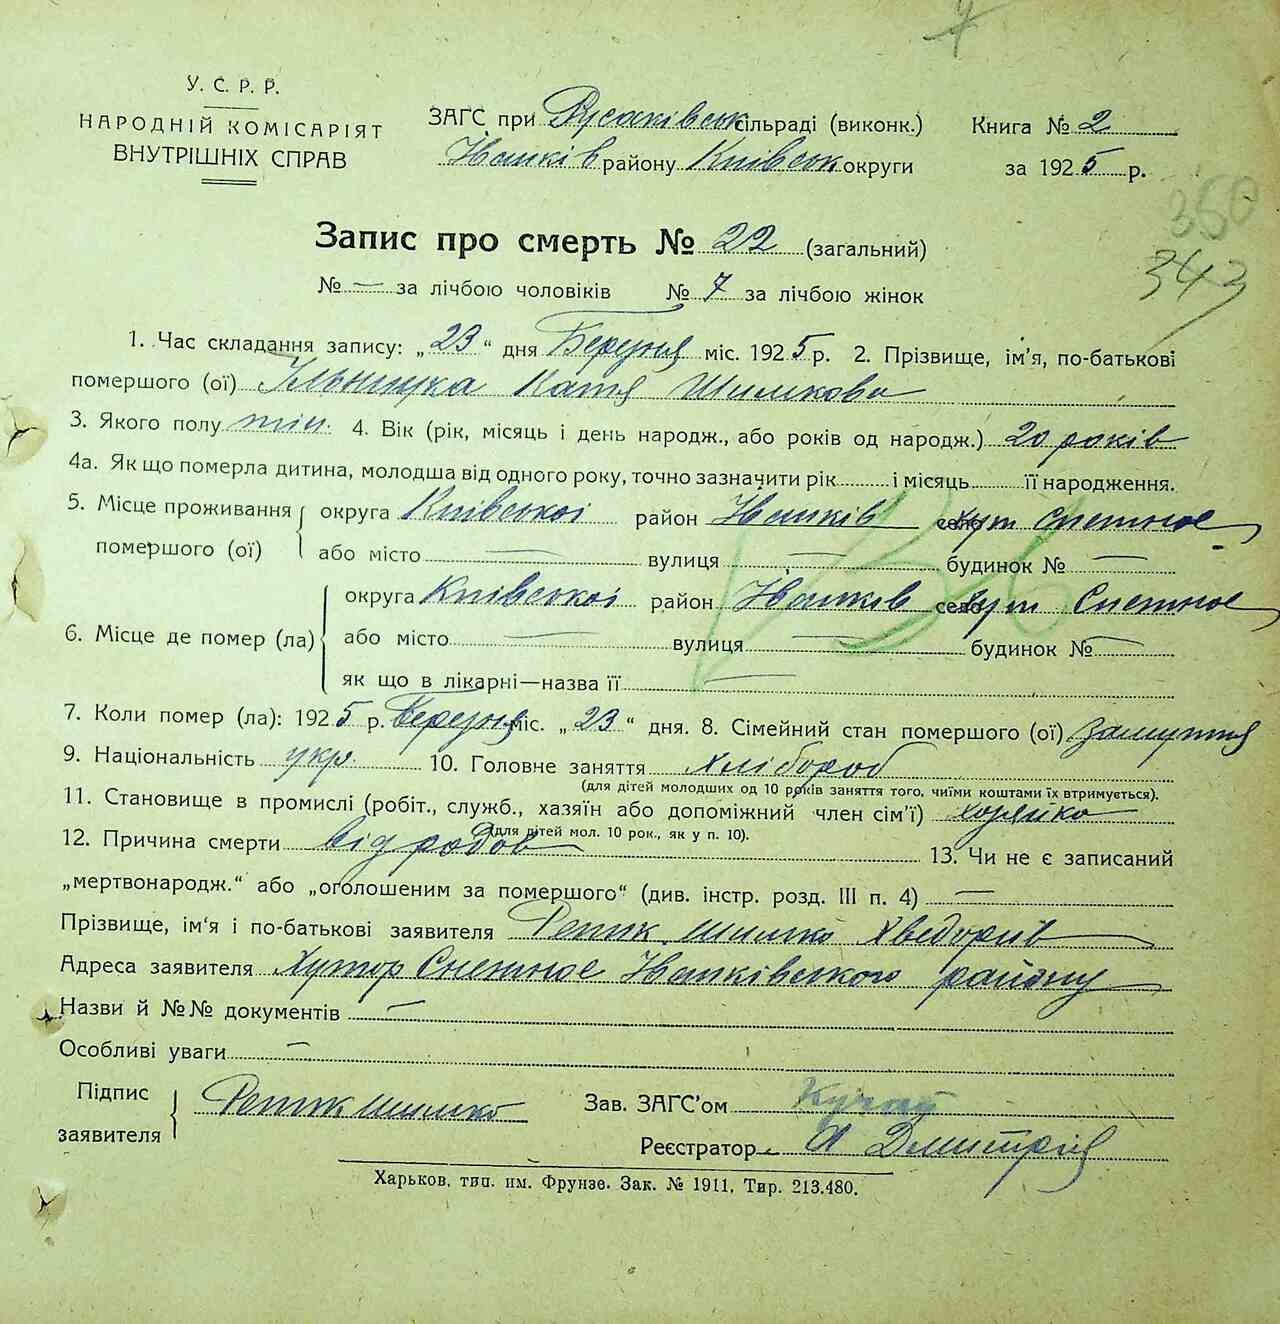 У. С. Р. Р.
НАРОДНІЙ КОМІСАРІЯТ
ВНУТРІШНІХ СПРАВ
ЗАГС при Русаківськ сільраді (виконк.)
Книга № 2
Іванків району Київськ округи
за 1925 р.
350
343
Запис про смерть № 22 (загальний)
№ — за лічбою чоловіків № 7 за лічбою жінок
1. Час складання запису: „23“ дня Березня міс. 1925 р. 2. Прізвище, ім'я, по-батькові
помершого (ої) Катя Шимкова
3. Якого полу жін. 4. Вік (рік, місяць і день народж., або років од народж.) 20 років
4а. Як що померла дитина, молодша від одного року, точно зазначити рік і місяць її народження.
5. Місце проживання помершого (ої) округа Київської район Іванків село хут Снетное
або місто — вулиця — будинок № —
6. Місце де помер (ла) округа Київської район Іванків село хут Снетное
або місто — вулиця — будинок № —
як що в лікарні—назва її —
7. Коли помер (ла): 1925 р. Березня міс. „23“ дня. 8. Сімейний стан помершого (ої) Замужня
9. Національність укр. 10. Головне заняття Хлібороб
(для дітей молодших од 10 років заняття того, чиїми коштами їх втримується).
11. Становище в промислі (робіт., служб., хазяїн або допоміжний член сім'ї) хозяйка
(для дітей мол. 10 рок., як у п. 10).
12. Причина смерти від родов 13. Чи не є записаний
„мертвонародж.“ або „оголошеним за помершого“ (див. інстр. розд. III п. 4) —
Прізвище, ім'я і по-батькові заявителя Репик Шимко Хведорів
Адреса заявителя Хутор Снетное Іванківського району
Назви й №№ документів —
Особливі уваги —
Підпис заявителя Репик Шимко
Зав. ЗАГС'ом
Реєстратор
Харьков, тип. им. Фрунзе. Зак. № 1911, Тир. 213.480.